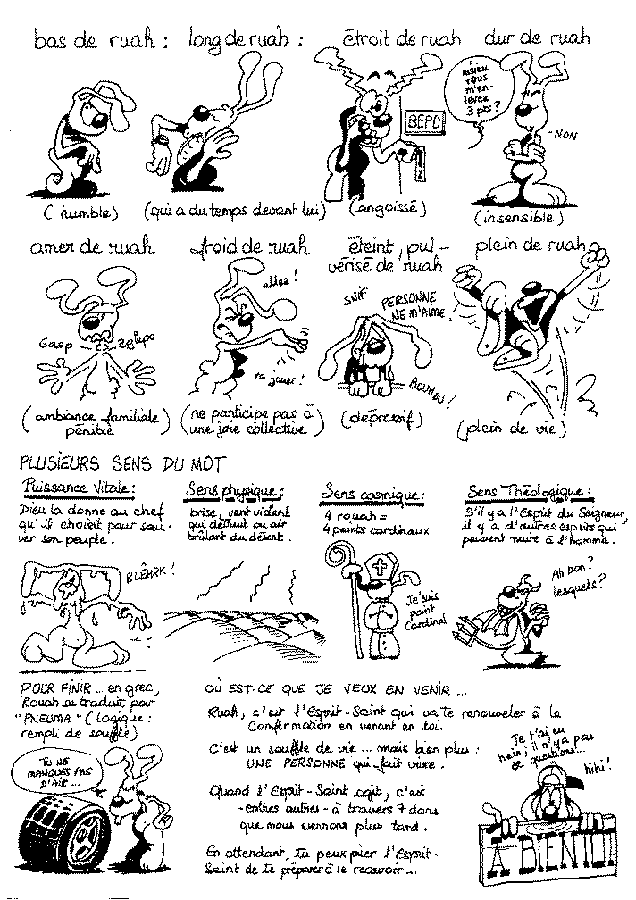 bas de ruah :
long de ruah :
étroit de ruah
dur de ruah
M'SIEU
VOUS
M'EN-
LEVEZ
3 pts ?
BEPC
- NON
(humble)
(qui a du temps devant lui)
(angoissé)
(insensible)
amer de ruah
froid de ruah
éteint, pul-
vérisé de ruah
plein de ruah
allez !
Gasp
SNIF
PERSONNE
NE M'AIME.
(ambiance familiale
pénible)
(ne participe pas à
une joie collective)
(dépressif)
(plein de vie)
PLUSIEURS SENS DU MOT
Puissance Vitale :
Dieu la donne au chef
qu'il choisit pour sau-
ver son peuple.
Sens physique :
brise, vent violent
qui détruit ou air
brûlant du désert.
Sens cosmique :
4 rouah =
4 points cardinaux
Sens Théologique :
S'il y a l'Esprit du Seigneur,
il y a d'autres esprits qui
peuvent nuire à l'homme.
Je suis
point
Cardinal
Ah bon ?
lesquels ?
POUR FINIR ... en grec,
Rouah se traduit par
"PNEUMA" (logique :
rempli de souffle)
TU NE
MANQUES PAS
D'AIR ...
OÙ EST-CE QUE JE VEUX EN VENIR ...
Ruah, c'est l'Esprit-Saint qui va te renouveler à la
Confirmation en venant en toi.
C'est un souffle de vie ... mais bien plus :
UNE PERSONNE qui fait vivre.
Quand l'Esprit-Saint agit, c'est
- entres autres - à travers 7 dons
que nous verrons plus tard.
En attendant, tu peux prier l'Esprit-
Saint de te préparer à le recevoir ...
Je t'ai eu
hein ; il n'y a pas
de questions...
hihi !
A BIENTOT